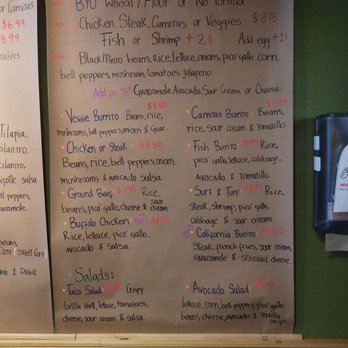 or Carnitas
$6.99
8.99
Tilapia,
cilantro.
salsa
peppers,
guacamole.
beans,
1 Drink
BYO Wheat / Flour or No Tortilla
Chicken, Steak, Carnitas or Veggies $8.75
Fish or Shrimp + 2$ Add egg +1$
Black/Pinto beans, rice, lettuce, onions, pico gallo, corn,
bell peppers, mushroom, tomatoes, jalapeno.
Add Guacamole, Avocado, Sour Cream or Cheese.
Veggie Burrito Beans, rice,
mushrooms, bell peppers, onions & guac.
Chicken or Steak $8.50
Beans, rice, bell peppers, onions,
mushrooms & avocado salsa.
Ground Beef Rice,
beans, pico gallo, cheese & sour cream
Buffalo Chicken
Rice, lettuce, pico gallo,
avocado & salsa.
Carnitas Burrito Beans,
rice, sour cream & tomatillo.
Fish Burrito Rice,
pico gallo, lettuce, cabbage,
Avocado & tomatillo
Surf & Turf Rice,
Steak, shrimp, pico gallo,
cabbage & sour cream.
California Burrito
Steak, french fries, sour cream,
Guacamole & shredded cheese
Salads:
Taco Salad Crispy
tortilla shell, lettuce, tomatoes,
cheese, sour cream & salsa.
Avocado Salad
lettuce, corn, bell peppers, pico gallo,
beans, cheese, avocado & tortilla
strips